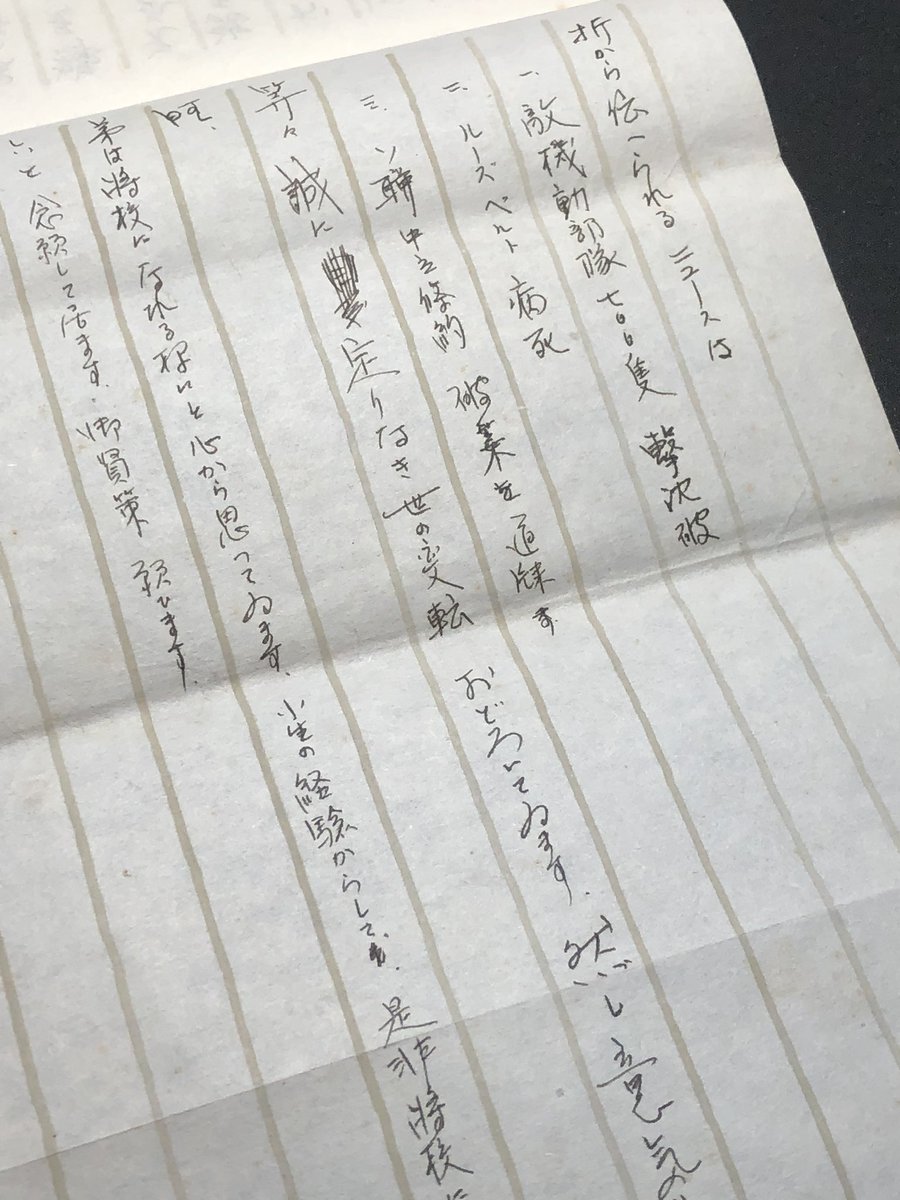 折から伝へられるニュースは
一、敵機動部隊七百隻 撃沈破
二、ルーズベルト 病死
三、ソ聯中立條約 破棄を通牒す
等々 誠に 定りなき世の変転 おどろいてゐます。然し意気
旺、
弟は将校になれる様にと心から思ってゐます。小生の経験からしても、是非将校に
いと念願して居ます。御賢策 願ひます。